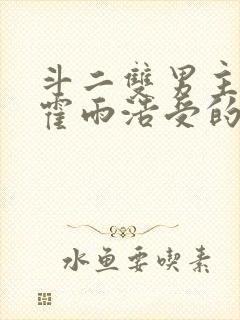 斗二雙男主
霍雨浩受的
水魚要喫素